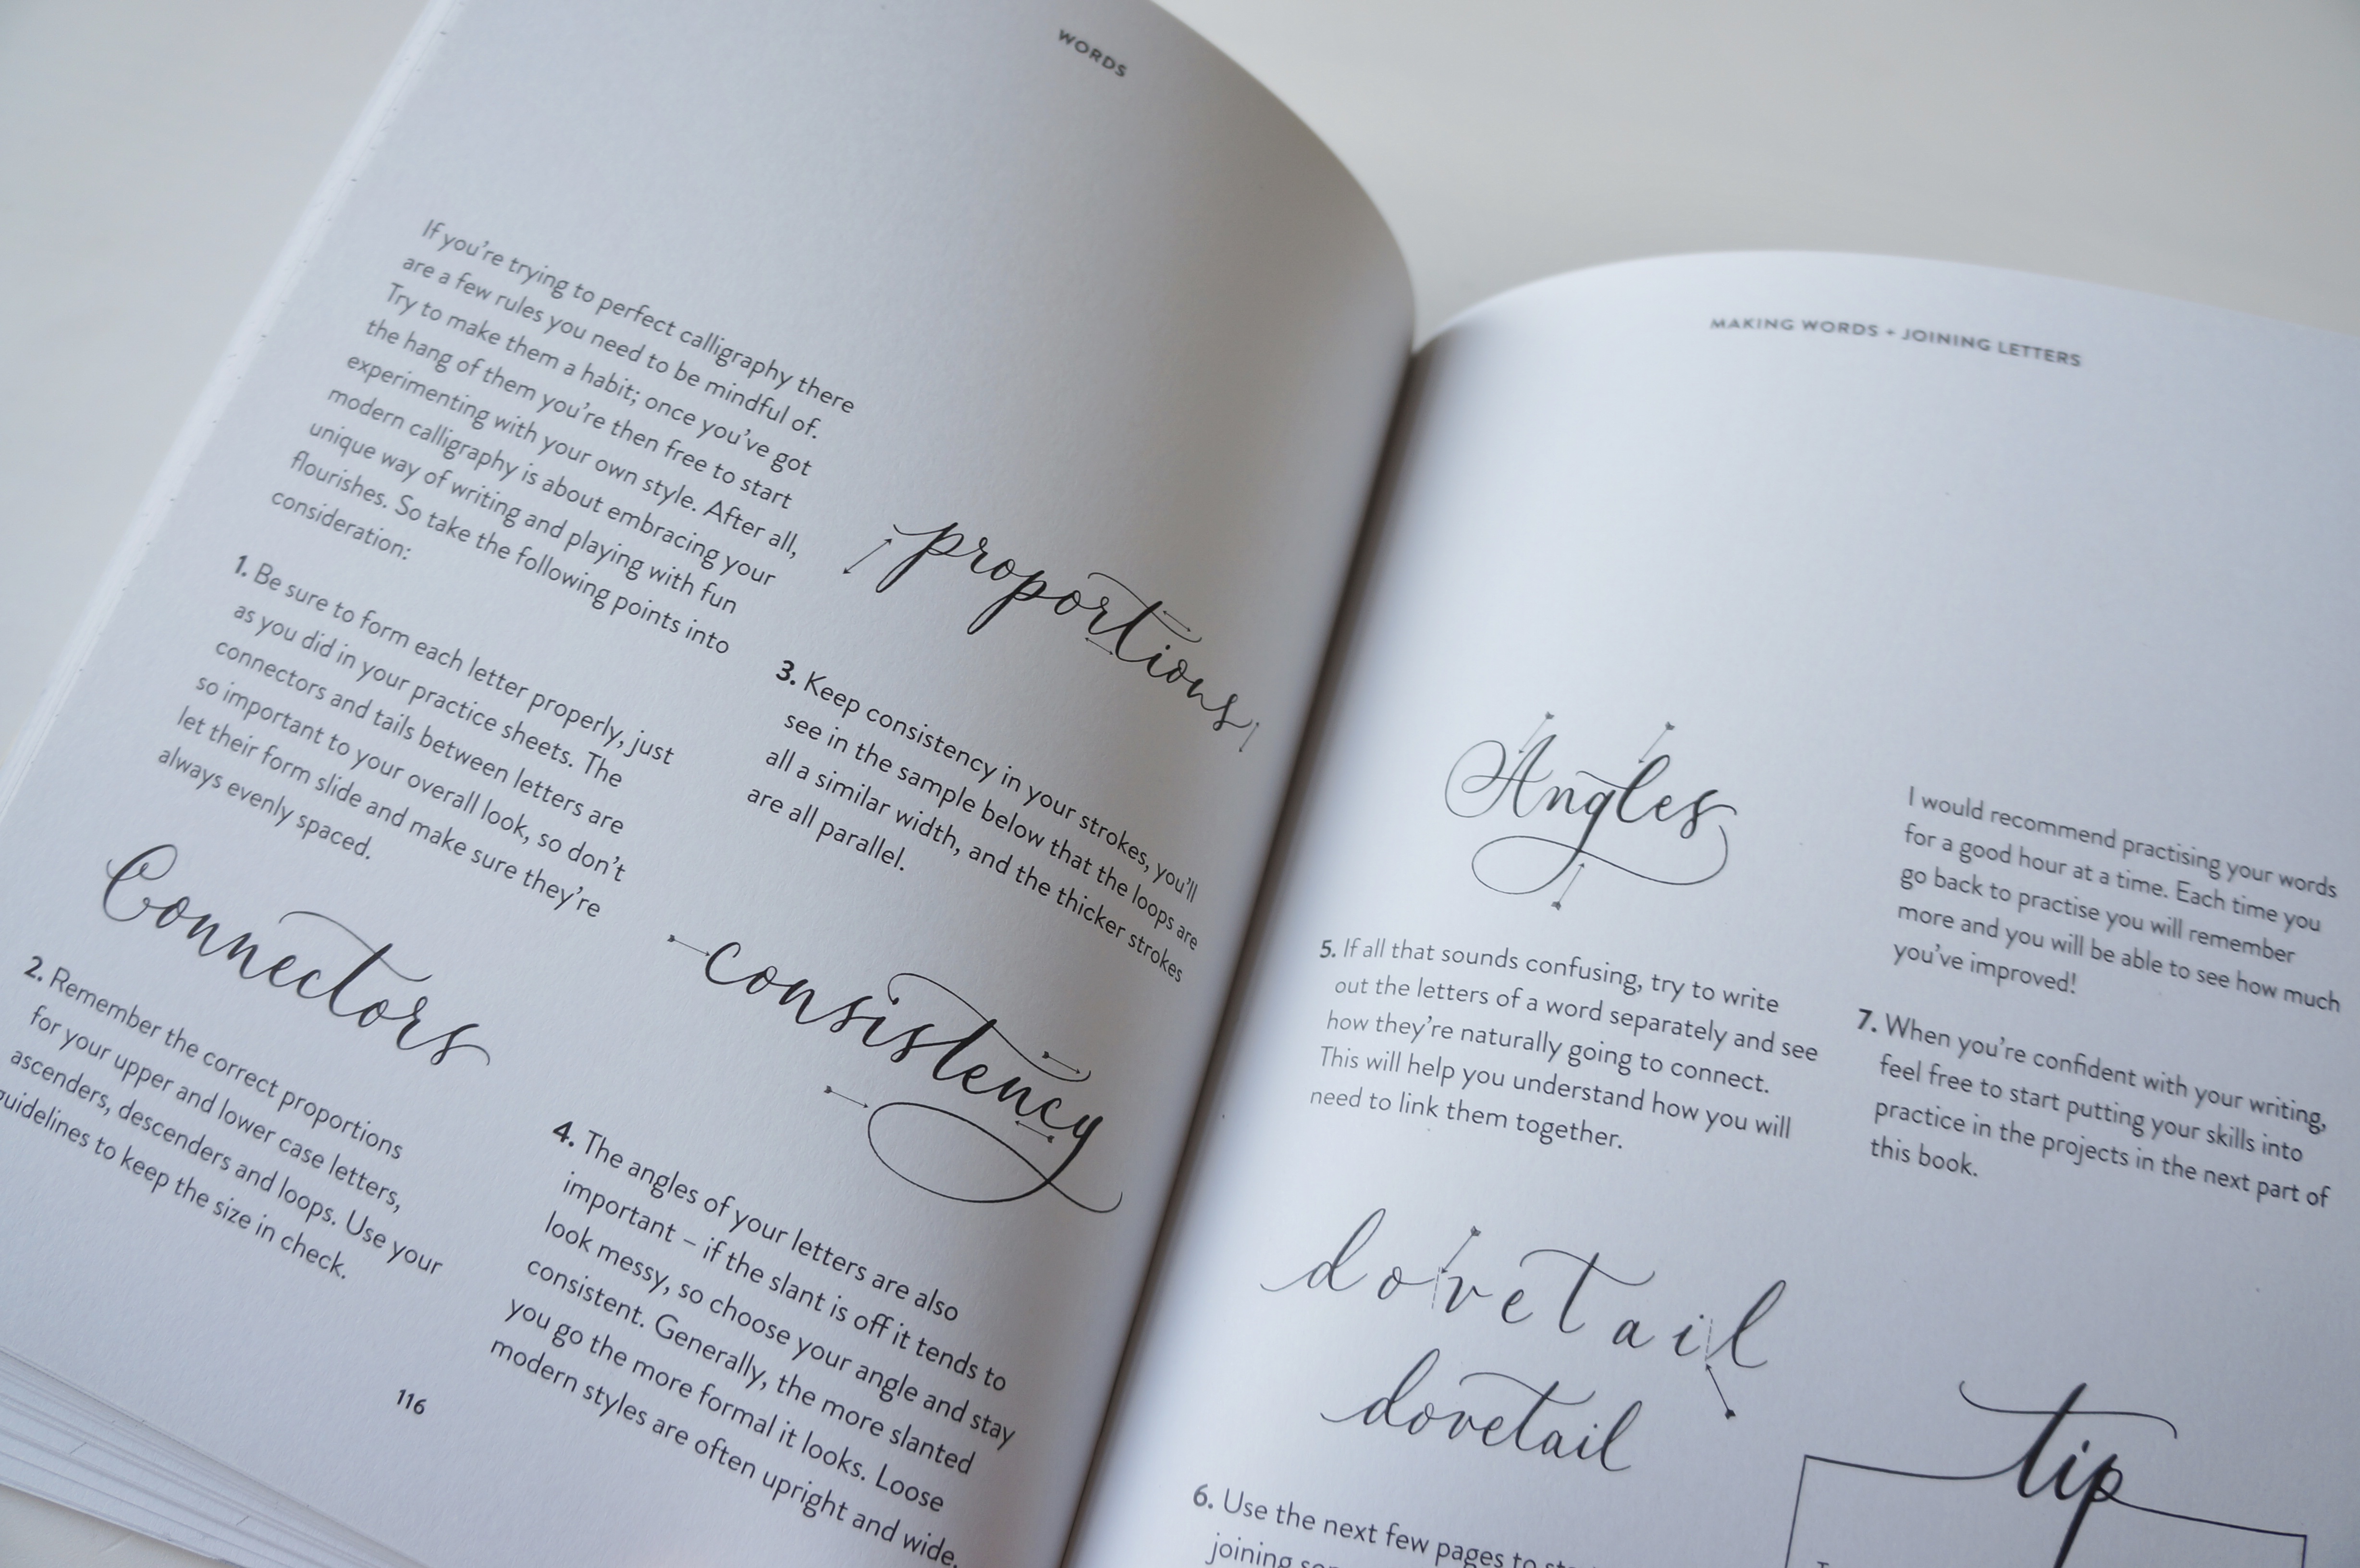 WORDS
If you're trying to perfect calligraphy there
are a few rules you need to be mindful of.
Try to make them a habit; once you've got
the hang of them you're then free to start
experimenting with your own style. After all,
modern calligraphy is about embracing your
unique way of writing and playing with fun
flourishes. So take the following points into
consideration:
1. Be sure to form each letter properly, just
as you did in your practice sheets. The
connectors and tails between letters are
so important to your overall look, so don't
let their form slide and make sure they're
always evenly spaced.
Connectors
2. Remember the correct proportions
for your upper and lower case letters,
ascenders, descenders and loops. Use your
guidelines to keep the size in check.
proportions
3. Keep consistency in your strokes, you'll
see in the sample below that the loops are
all a similar width, and the thicker strokes
are all parallel.
consistency
4. The angles of your letters are also
important – if the slant is off it tends to
look messy, so choose your angle and stay
consistent. Generally, the more slanted
you go the more formal it looks. Loose
modern styles are often upright and wide.
116
MAKING WORDS + JOINING LETTERS
Angles
5. If all that sounds confusing, try to write
out the letters of a word separately and see
how they're naturally going to connect.
This will help you understand how you will
need to link them together.
dovetail
dovetail
6. Use the next few pages to
joining
I would recommend practising your words
for a good hour at a time. Each time you
go back to practise you will remember
more and you will be able to see how much
you've improved!
7. When you're confident with your writing,
feel free to start putting your skills into
practice in the projects in the next part of
this book.
tip